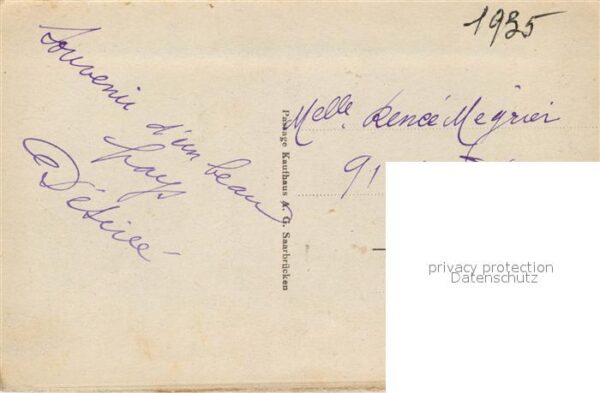 1935
Souvenir
d'un beau
pays
Melle Renée Megrier
91
Passage Kaufhaus A. G. Saarbrücken
privacy protection
Datenschutz